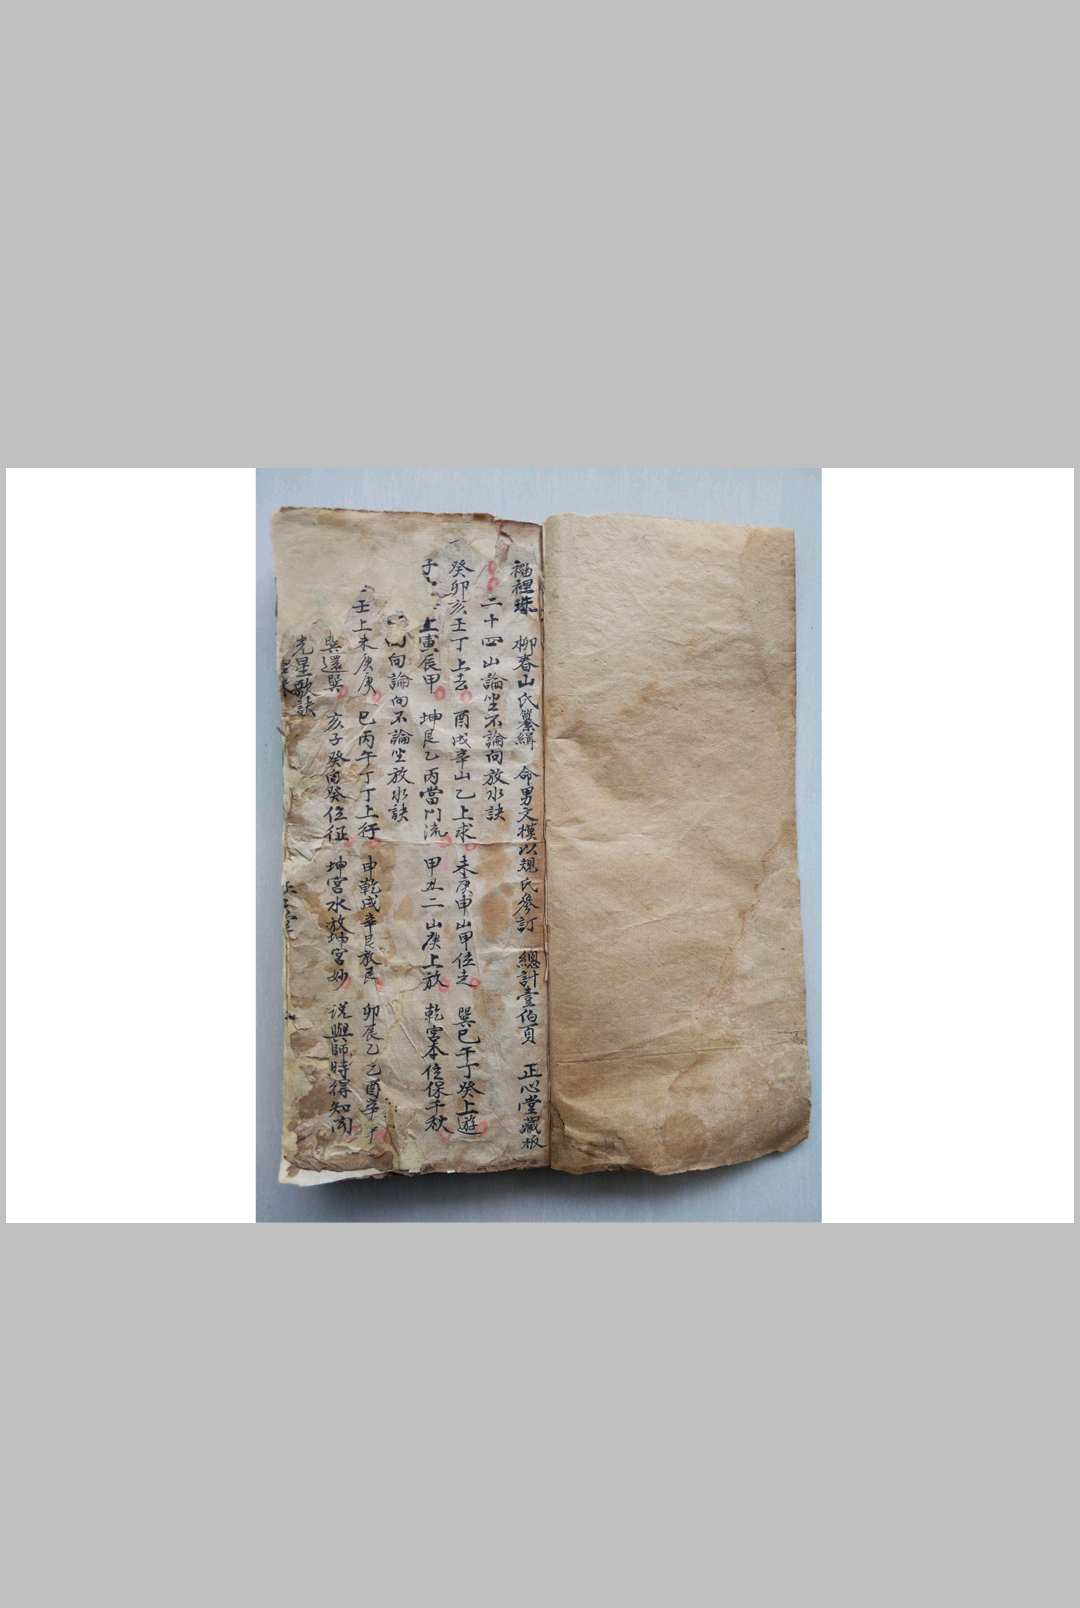 袖裡珠 柳春山氏纂緝 命男文模以規氏參訂 總計壹佰頁 正心堂藏板
二十四山論坐不論向放水訣
癸卯亥壬丁上去 酉戌辛山乙上求 未庚申山甲位走 巽巳午丁癸上遊
子 上寅辰甲 坤艮乙丙當門流 甲丑二山庚上放 乾宮本位保千秋
向論向不論坐放水訣
壬上未庚庚 巳丙午丁丁上行 申乾戌辛艮放艮 卯辰乙乙酉辛
巽還巽 亥子癸 癸位征 坤宮水放坤宮妙 說與師時得知
光星歌訣